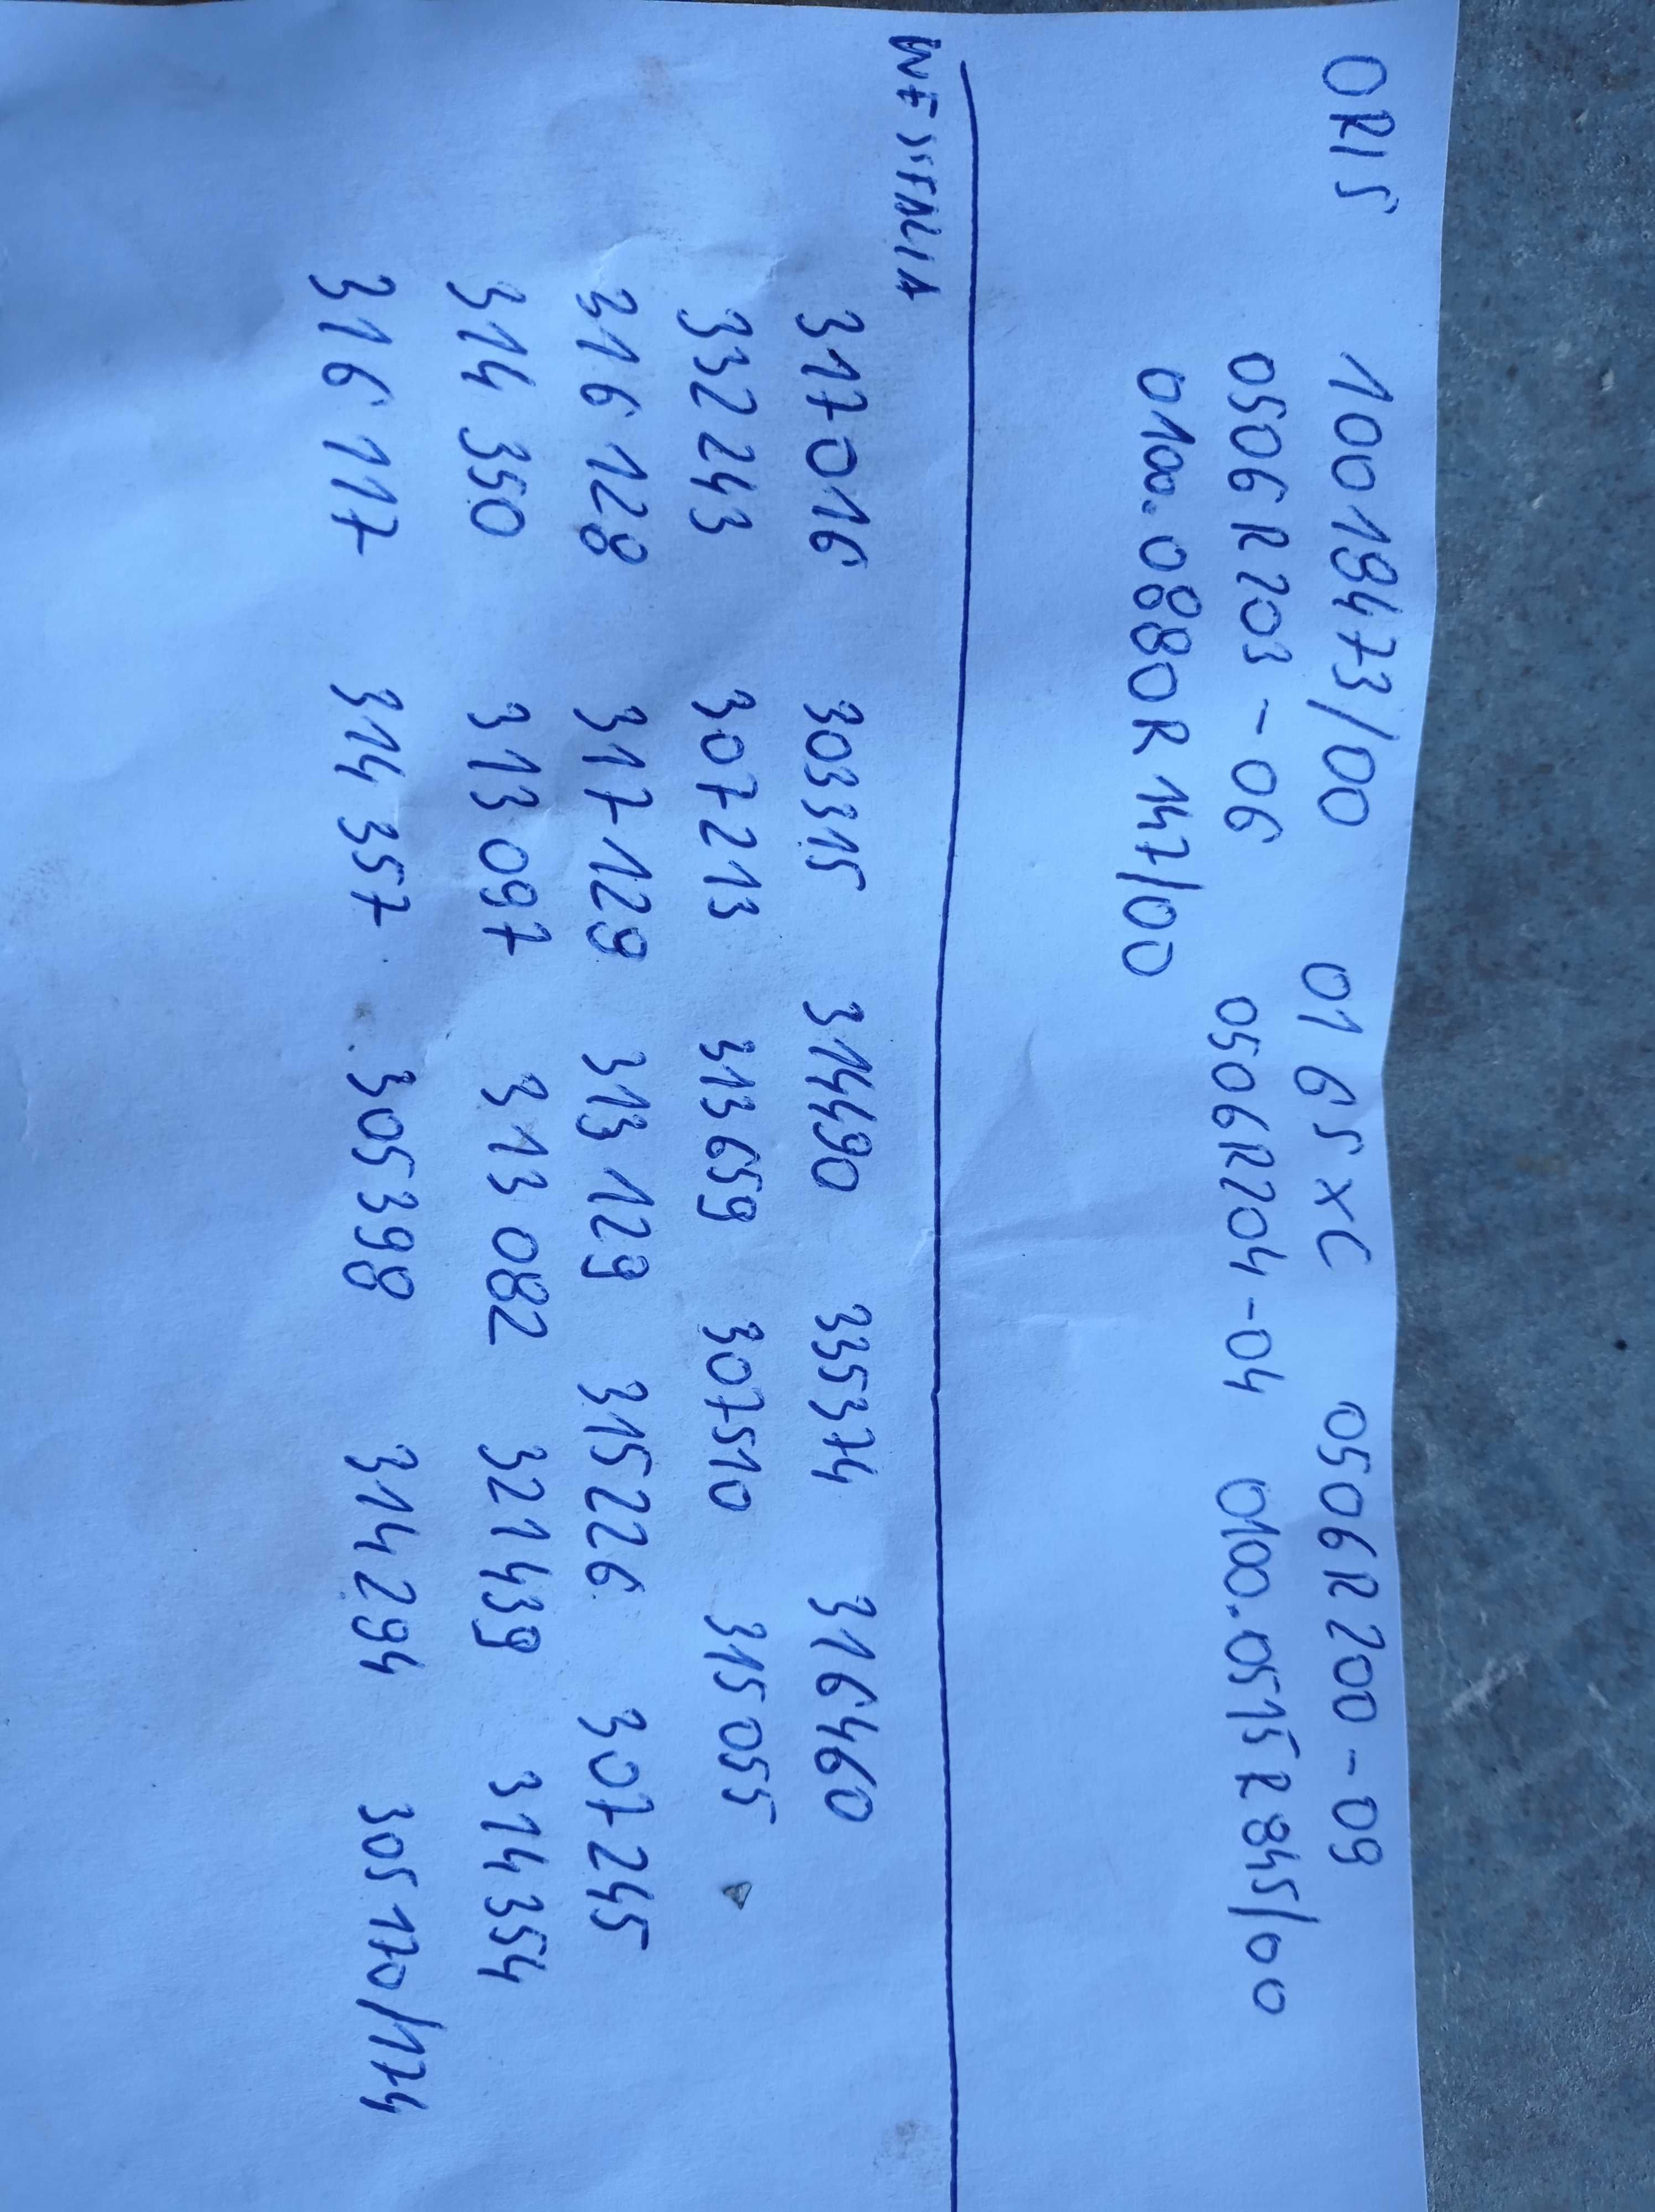 ORIS 10019473/00 0165XC 0506R200-09
0506R203-06 0506R204-04 0100.0515R845/00
0100.0880R147/00
WESTFALIA
317016 303315 314490 335374 316460
332243 307213 313659 307510 315055
316128 317129 313129 315226 307245
314350 313097 313082 321439 314354
316117 314357 305398 314294 305170/174